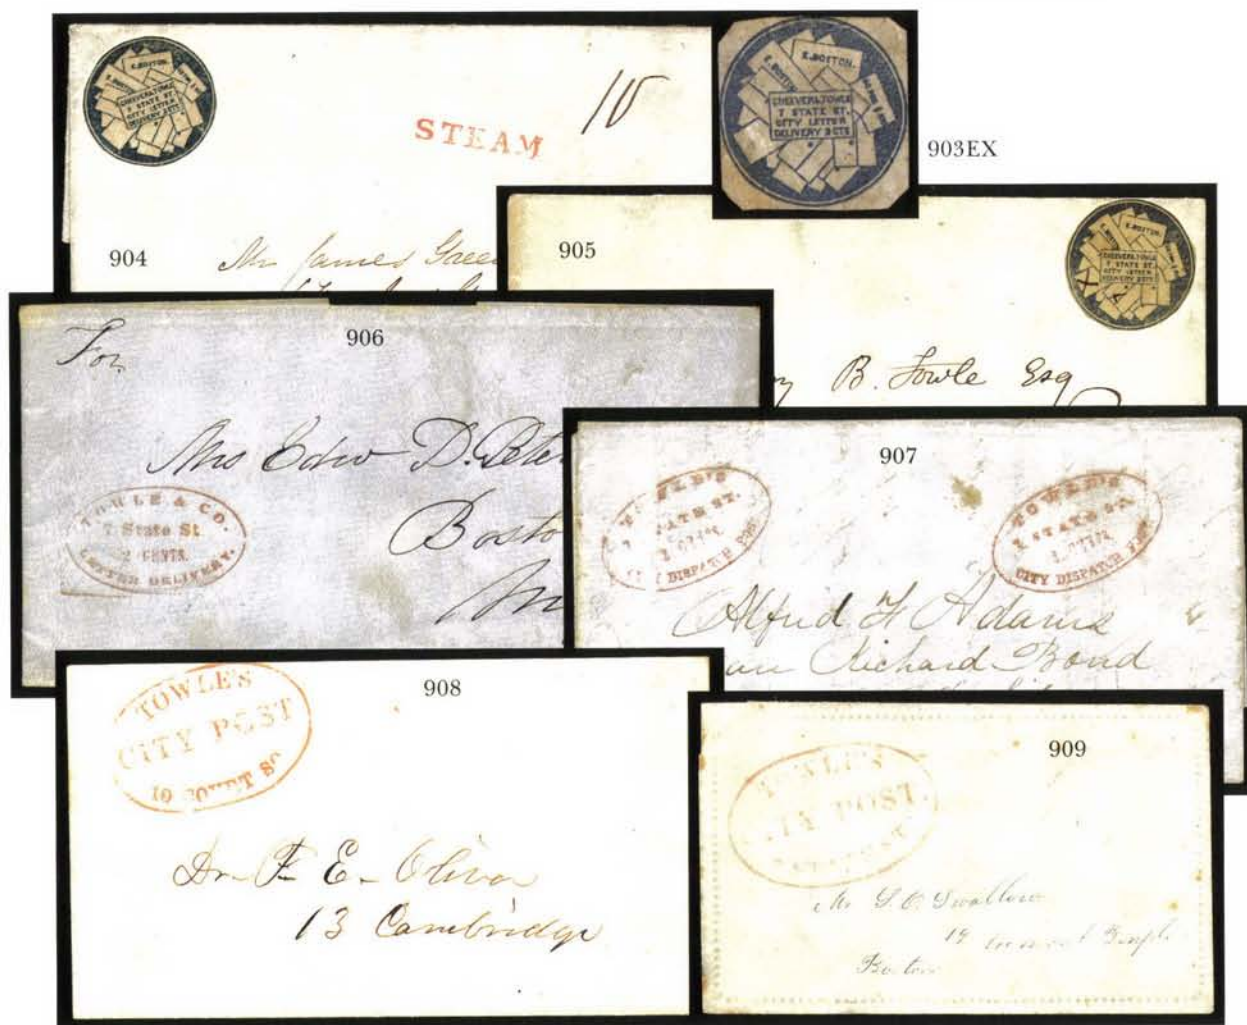 E. BOSTON.
E. BOSTON
CHEEVER & TOWLE
7 STATE ST.
CITY LETTER
DELIVERY 2 CTS
STEAM
10
904
Mr James
E. BOSTON.
E. BOSTON
CHEEVER & TOWLE
7 STATE ST.
CITY LETTER
DELIVERY 2 CTS
903EX
905
E. BOSTON.
CHEEVER & TOWLE
7 STATE ST.
CITY LETTER
DELIVERY 2 CTS
X
B. Fowle Esq
906
For
Mrs Edw D. Pete
Bosto
TOWLE & CO.
7 State St
2 CENTS.
LETTER DELIVERY.
907
TOWLE'S
STATE ST.
CITY DISPATCH POST
TOWLE'S
7 STATE ST.
CITY DISPATCH POST
Alfred F Adams
Richard Bond
908
TOWLE'S
CITY POST
10 COURT SQ
Dr F. E. Oliver
13 Cambridge
909
TOWLE'S
CITY POST.
7 STATE ST.
Mr S. O. Swallow
19
Boston